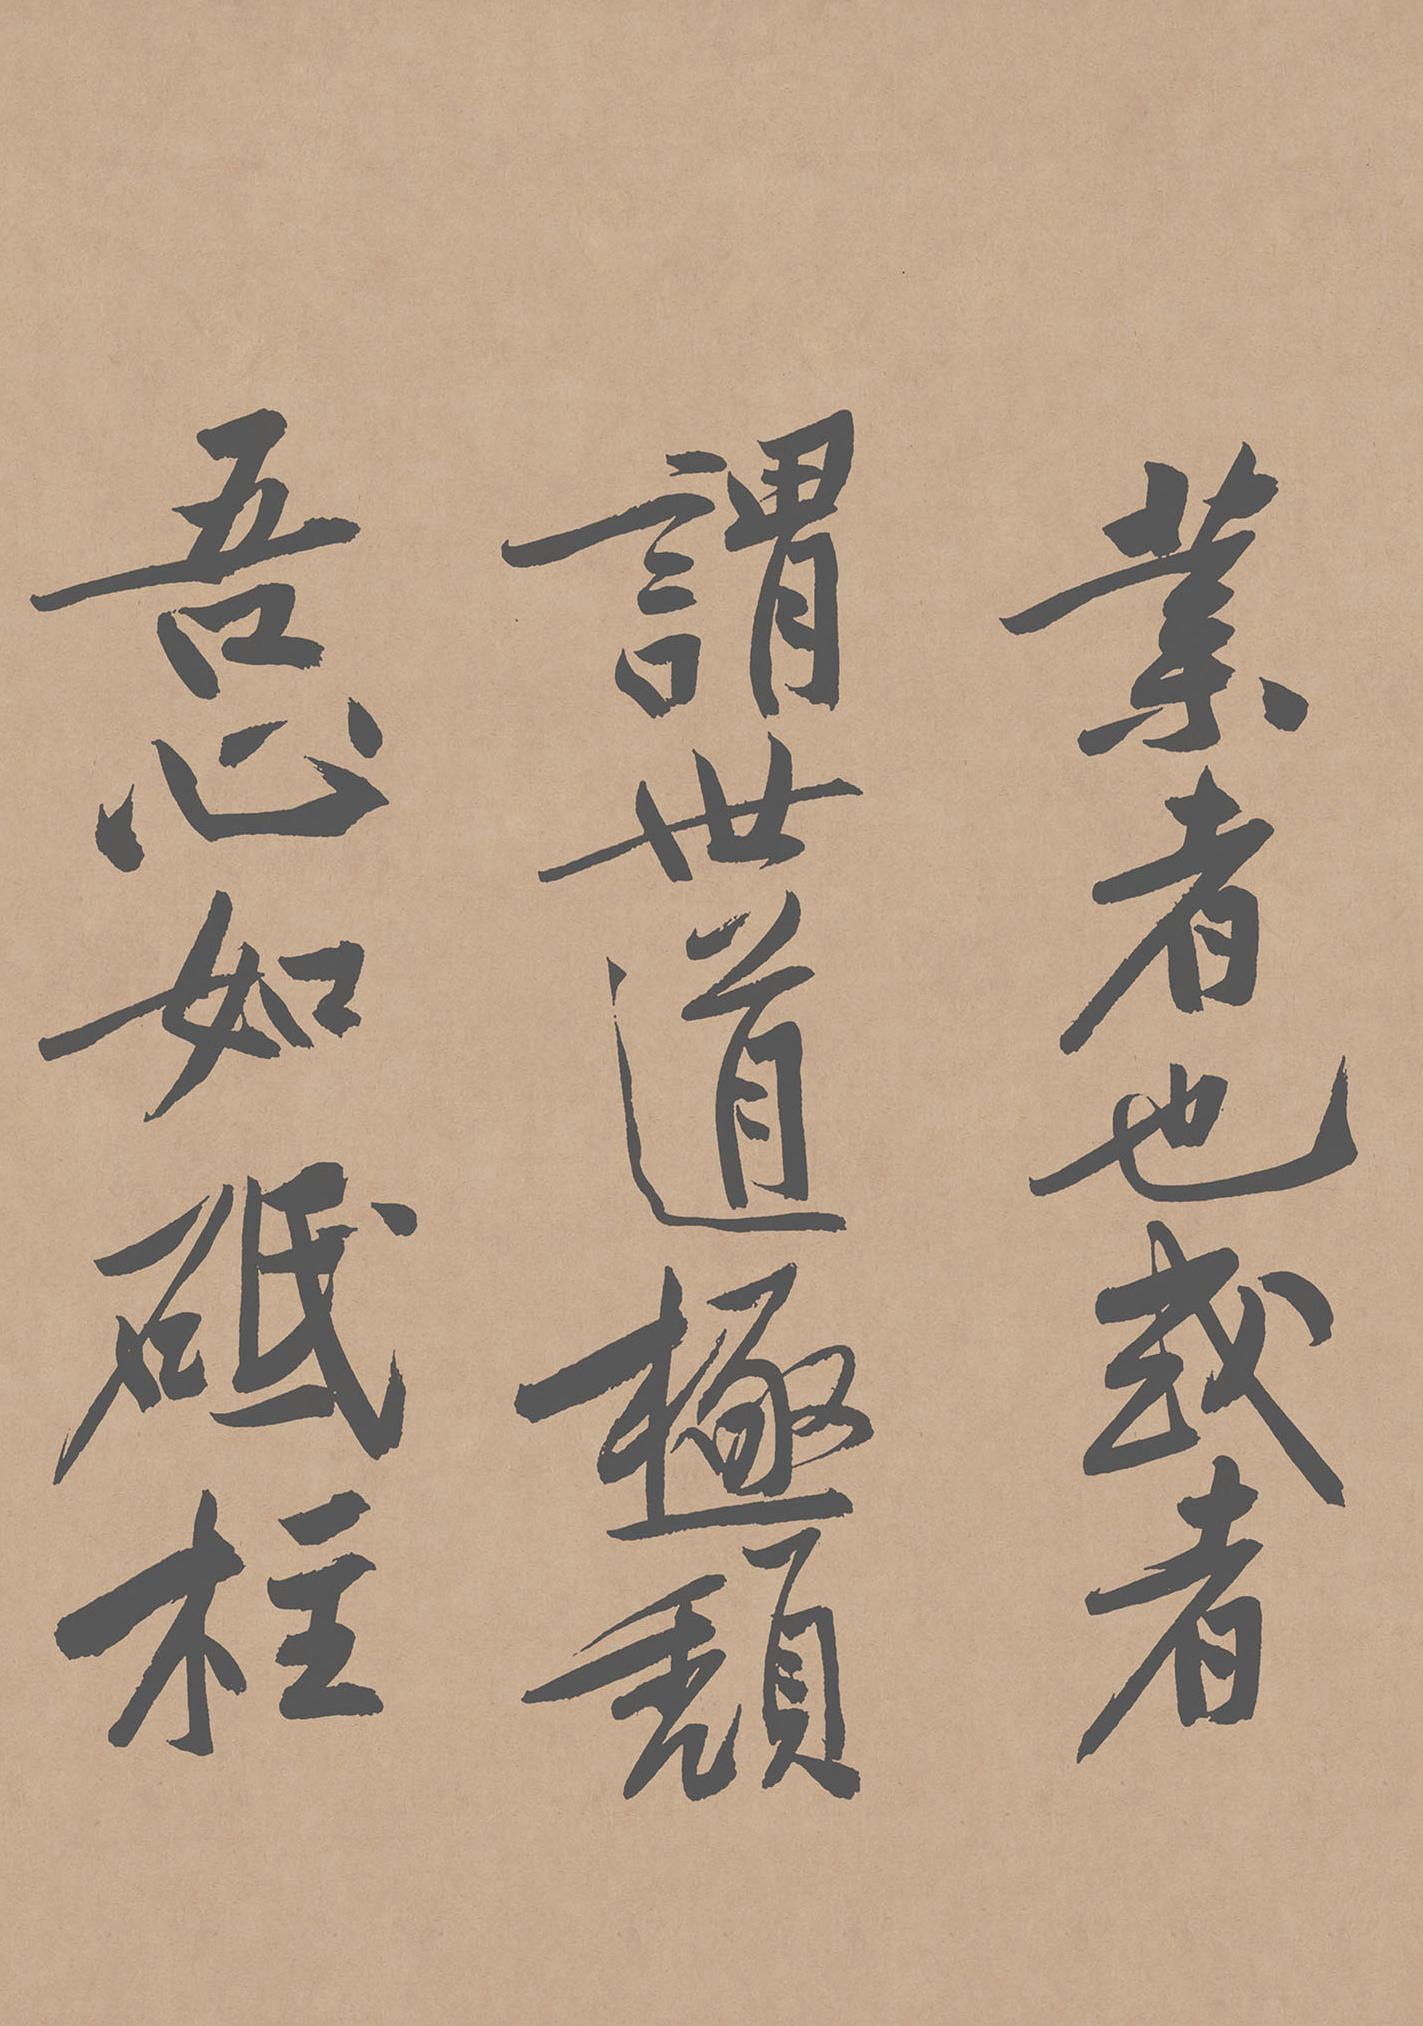 業者也或者
謂世道極頹
吾心如砥柱